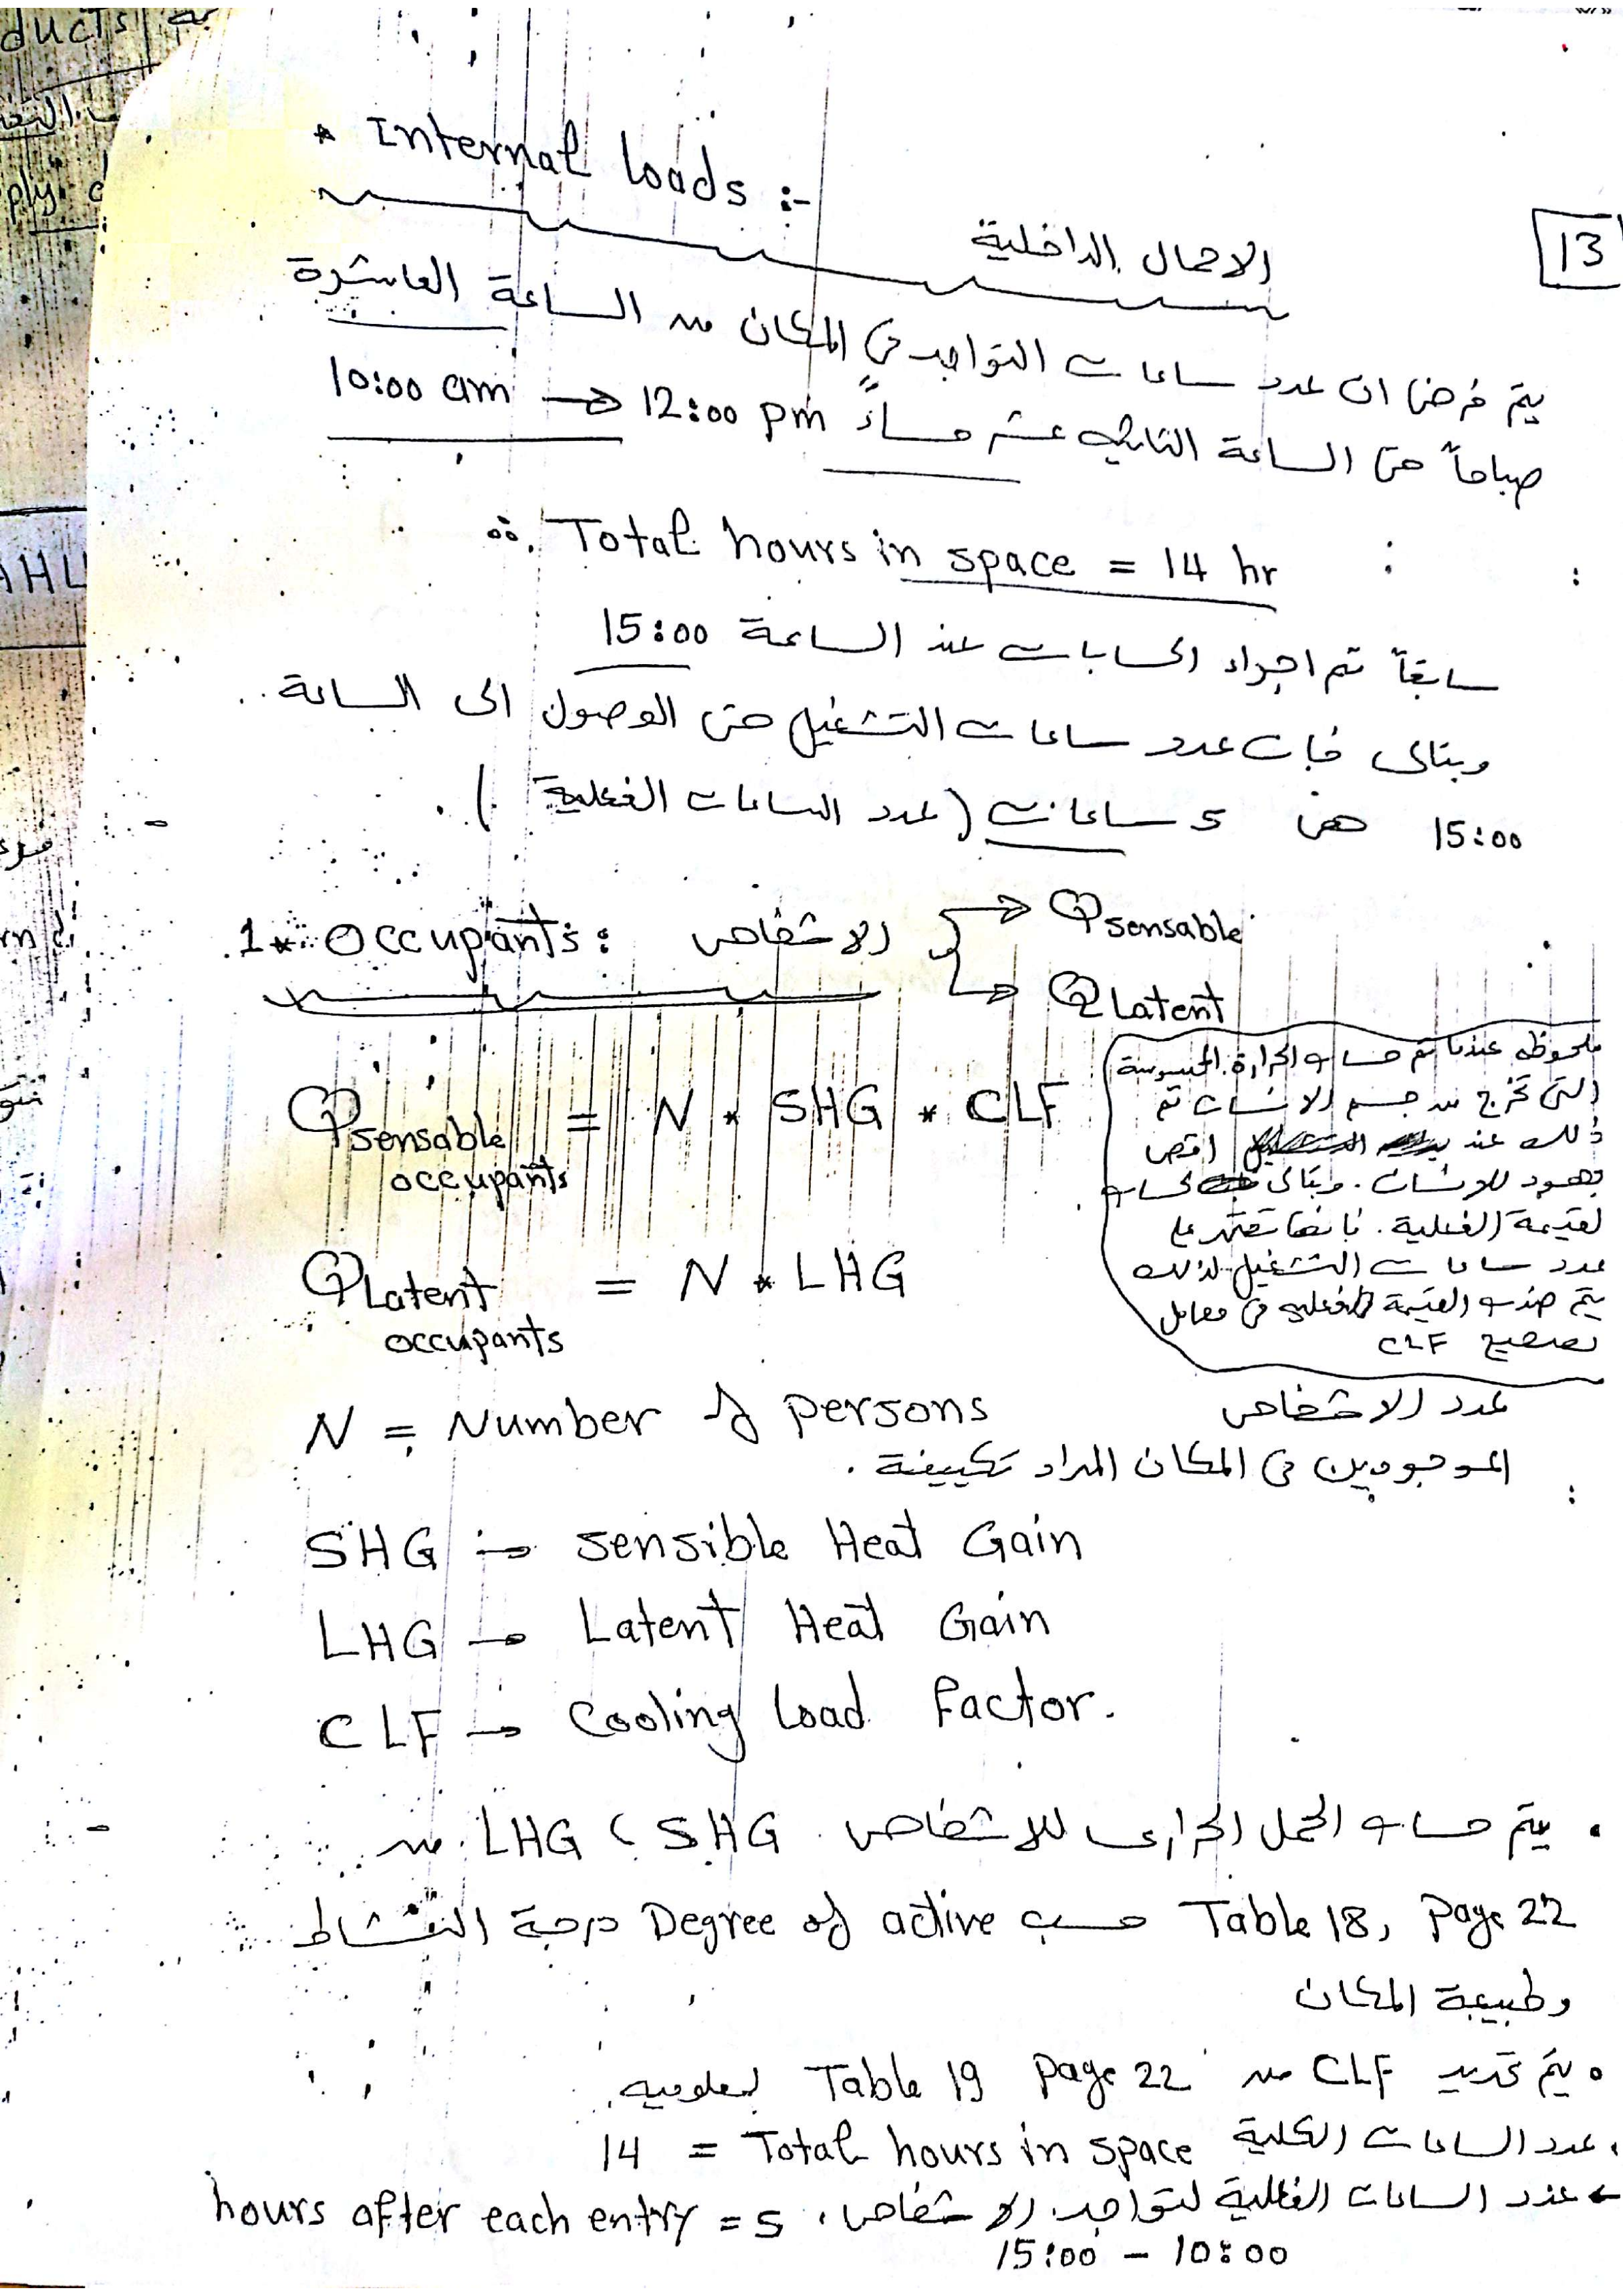 ducts
ply
AHU
* Internal loads :-
13
الاحمال الداخلية
يتم فرض ان عدد ساعات التواجد في المكان من الساعة العاشرة
صباحاً حتى الساعة الثانيه عشر مساءً 10:00 am → 12:00 pm
∴ Total hours in space = 14 hr
سابقاً تم اجراء الحسابات عند الساعة 15:00
وبتالى فإن عدد ساعات التشغيل حتى الوصول الى الساعة
15:00 هى 5 ساعات (عدد الساعات الفعلية).
1* Occupants: الاشخاص → Qsensable
→ QLatent
Qsensable occupants = N * SHG * CLF
QLatent occupants = N * LHG
ملحوظه عندما تم حساب الحرارة المحسوسة
التى تخرج من جسم الانسان تم
ذلك عند اقصى
مجهود للانسان. وبتالى لحساب
القيمة الفعلية. فإنها تعتمد على
عدد ساعات التشغيل لذلك
يتم ضرب القيمة الفعليه فى معامل
تصحيح CLF
N = Number of persons عدد الاشخاص
الموجودين فى المكان المراد تكييفة.
SHG → sensible Heat Gain
LHG → Latent Heat Gain
CLF → Cooling load factor.
• يتم حساب الحمل الحرارى للاشخاص SHG، LHG من
Table 18, Page 22 حسب Degree of active درجة النشاط
وطبيعة المكان
• يتم تحديد CLF من Table 19 Page 22 بمعلوميه
. عدد الساعات الكلية Total hours in space = 14
← عدد الساعات الفعلية لتواجد الاشخاص، hours after each entry = 5
15:00 - 10:00